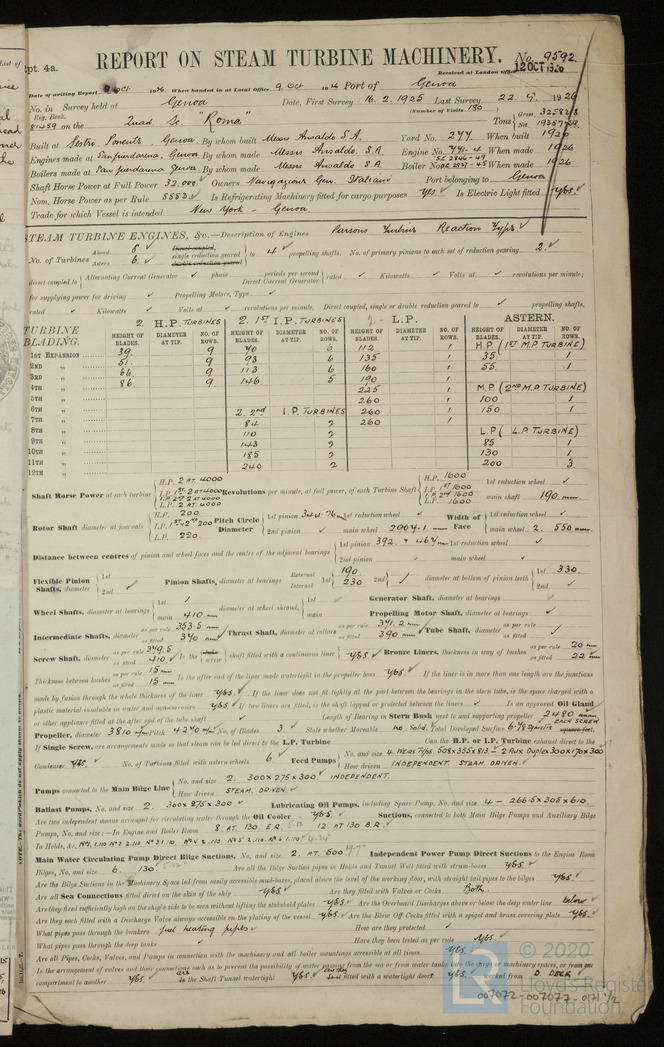 pt. 4a.
REPORT ON STEAM TURBINE MACHINERY. No. 9592
Received at London Office 12 OCT 1926
Date of writing Report 19 When handed in at Local Office 9 Oct 1926 Port of Genoa
No. in Survey held at Genoa Date, First Survey 16. 2. 1925 Last Survey 22. 9. 1926
Reg. Book. (Number of Visits 180)
81459 on the Quad Sc. "Roma" Tons Gross Net
Built at Sestri Ponente, Genoa. By whom built Messrs Ansaldo S.A. Yard No. 277. When built 1926
Engines made at Sampierdarena, Genoa By whom made Messrs Ansaldo. S.A. Engine No. When made 1926
Boilers made at Sampierdarena Genoa. By whom made Messrs Ansaldo S.A. Boiler No. When made 1926
Shaft Horse Power at Full Power 32.000 Owners Navigazione Gen. Italiana Port belonging to Genoa
Nom. Horse Power as per Rule 5553 Is Refrigerating Machinery fitted for cargo purposes Yes. Is Electric Light fitted Yes.
Trade for which Vessel is intended New York - Genoa.
STEAM TURBINE ENGINES, &c.—Description of Engines Parsons Turbine Reaction Type.
No. of Turbines Ahead 8 Astern 6 Direct coupled, single reduction geared double reduction geared to 4 propelling shafts. No. of primary pinions to each set of reduction gearing 2.
direct coupled to Alternating Current Generator phase periods per second Direct Current Generator rated Kilowatts Volts at revolutions per minute;
for supplying power for driving Propelling Motors, Type
rated Kilowatts Volts at revolutions per minute. Direct coupled, single or double reduction geared to propelling shafts.
TURBINE BLADING. 2. H.P. TURBINES 2. 1st I.P. TURBINES 2- L.P. ASTERN.
HEIGHT OF BLADES. DIAMETER AT TIP. NO. OF ROWS. HEIGHT OF BLADES. DIAMETER AT TIP. NO. OF ROWS. HEIGHT OF BLADES. DIAMETER AT TIP. NO. OF ROWS. HEIGHT OF BLADES. DIAMETER AT TIP. NO. OF ROWS.
H.P. (1ST M.P. TURBINE)
1ST EXPANSION 39. 9 70 6 112 1 35 1
2ND " 51. 9 93 6 135 1 55 1
3RD " 66. 9 113 6 160 1
4TH " 86. 9. 146 5 190 1 M.P. (2ND M.P. TURBINE)
5TH " 225 1 100 1
6TH " 260 1 150 1
7TH " 2. 2nd I.P. TURBINES 260 1
8TH " 84 2 260 1 L.P. (L.P. TURBINE)
9TH " 110 2 85 1
10TH " 143 2 130 1
11TH " 185 2 200 3.
12TH " 240 2
Shaft Horse Power at each turbine H.P. 2 AT 4000 I.P. 1st 2 AT 4000 I.P. 2nd 2 AT 4000 L.P. 2 AT 4000 Revolutions per minute, at full power, of each Turbine Shaft H.P. 1600 I.P. 1st 1600 2nd 1600 L.P. 1600 1st reduction wheel main shaft 190
Rotor Shaft diameter at journals H.P. 200 I.P. 1st - 2nd 200 L.P. 220 Pitch Circle Diameter 1st pinion 344.76 1st reduction wheel 2nd pinion main wheel 2904.1 mm Width of Face 1st reduction wheel main wheel 2. 550 mm.
Distance between centres of pinion and wheel faces and the centre of the adjacent bearings 1st pinion 392. & 464 mm 1st reduction wheel 2nd pinion main wheel
Flexible Pinion Shafts, diameter 1st 2nd Pinion Shafts, diameter at bearings External 1st 190 Internal 230 2nd diameter at bottom of pinion teeth 1st 330 2nd
Wheel Shafts, diameter at bearings 1st main 410 mm diameter at wheel shroud, 1st main Generator Shaft, diameter at bearings
Propelling Motor Shaft, diameter at bearings
Intermediate Shafts, diameter as per rule 353.5 as fitted 370 mm Thrust Shaft, diameter at collars as per rule 371.2 mm as fitted 390 mm Tube Shaft, as per rule as fitted
Screw Shaft, diameter as per rule 379.5 as fitted 410 Is the tube screw shaft fitted with a continuous liner Yes. Bronze Liners, thickness in way of bushes as per rule 20 mm as fitted 22 mm
Thickness between bushes as per rule 15 mm as fitted 15 mm Is the after end of the liner made watertight in the propeller boss Yes. If the liner is in more than one length are the junctions
made by fusion through the whole thickness of the liner Yes. If the liner does not fit tightly at the part between the bearings in the stern tube, is the space charged with a
plastic material insoluble in water and non-corrosive Yes. If two liners are fitted, is the shaft lapped or protected between the liners Is an approved Oil Gland
or other appliance fitted at the after end of the tube shaft Length of Bearing in Stern Bush next to and supporting propeller 2480 mm EACH SCREW
Propeller, diameter 3810 mm Pitch 4270 mm No. of Blades 3. State whether Moveable No. Solid. Total Developed Surface square feet.
If Single Screw, are arrangements made so that steam can be led direct to the L.P. Turbine Can the H.P. or I.P. Turbine exhaust direct to the
Condenser Yes. No. of Turbines fitted with astern wheels 6 Feed Pumps No. and size 4. WEIRS TYPE. 508x355x813 - 2 AUX DUPLEX 300x170x300 How driven INDEPENDENT. STEAM. DRIVEN.
Pumps connected to the Main Bilge Line No. and size 2. 300x275x300 INDEPENDENT. How driven STEAM. DRIVEN.
Ballast Pumps, No. and size 2. 300x275x300 Lubricating Oil Pumps, including Spare Pump, No. and size 4 - 266.5x305x610.
Are two independent means arranged for circulating water through the Oil Cooler Yes. Suctions, connected to both Main Bilge Pumps and Auxiliary Bilge
Pumps, No. and size:—In Engine and Boiler Room 8. AT 130. E.R. 12 AT 130 B.R.
In Holds, &c. No 1. 110 No 2 2.110 No 3 1.110. No 4 2.110. No 5 2.110. No 6 1.110.
Main Water Circulating Pump Direct Bilge Suctions, No. and size 2. AT. 500 Independent Power Pump Direct Suctions to the Engine Room
Bilges, No. and size 6. 130 Are all the Bilge Suction pipes in Holds and Tunnel Well fitted with strum-boxes Yes.
Are the Bilge Suctions in the Machinery Space led from easily accessible mud-boxes, placed above the level of the working floor, with straight tail pipes to the bilges Yes.
Are all Sea Connections fitted direct on the skin of the ship Yes Are they fitted with Valves or Cocks Both.
Are they fixed sufficiently high on the ship's side to be seen without lifting the stokehold plates Yes. Are the Overboard Discharges above or below the deep water line below
Are they each fitted with a Discharge Valve always accessible on the plating of the vessel Yes. Are the Blow Off Cocks fitted with a spigot and brass covering plate Yes.
What pipes pass through the bunkers fuel heating pipes How are they protected
What pipes pass through the deep tanks Have they been tested as per rule Yes.
Are all Pipes, Cocks, Valves, and Pumps in connection with the machinery and all boiler mountings accessible at all times Yes.
Is the arrangement of valves and their connections such as to prevent the possibility of water passing from the sea or from water tanks into the cargo or machinery spaces, or from one
compartment to another Yes. Is the Shaft Tunnel watertight Yes. Is it fitted with a watertight door Yes. worked from D. DECK
© 2020
Lloyd's Register
Foundation
007072-007077-0171 1/2